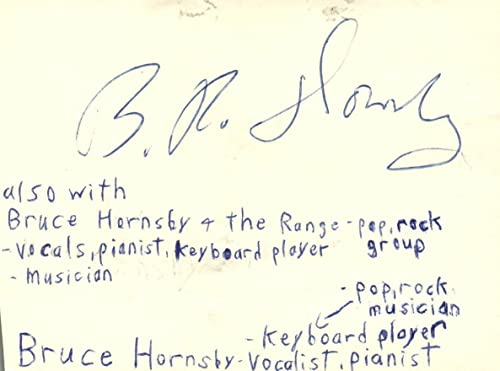 B. R. Hornsby
also with
Bruce Hornsby & the Range - pop, rock group
- vocals, pianist, keyboard player
- musician
- pop, rock musician
- keyboard player
Bruce Hornsby - vocalist, pianist